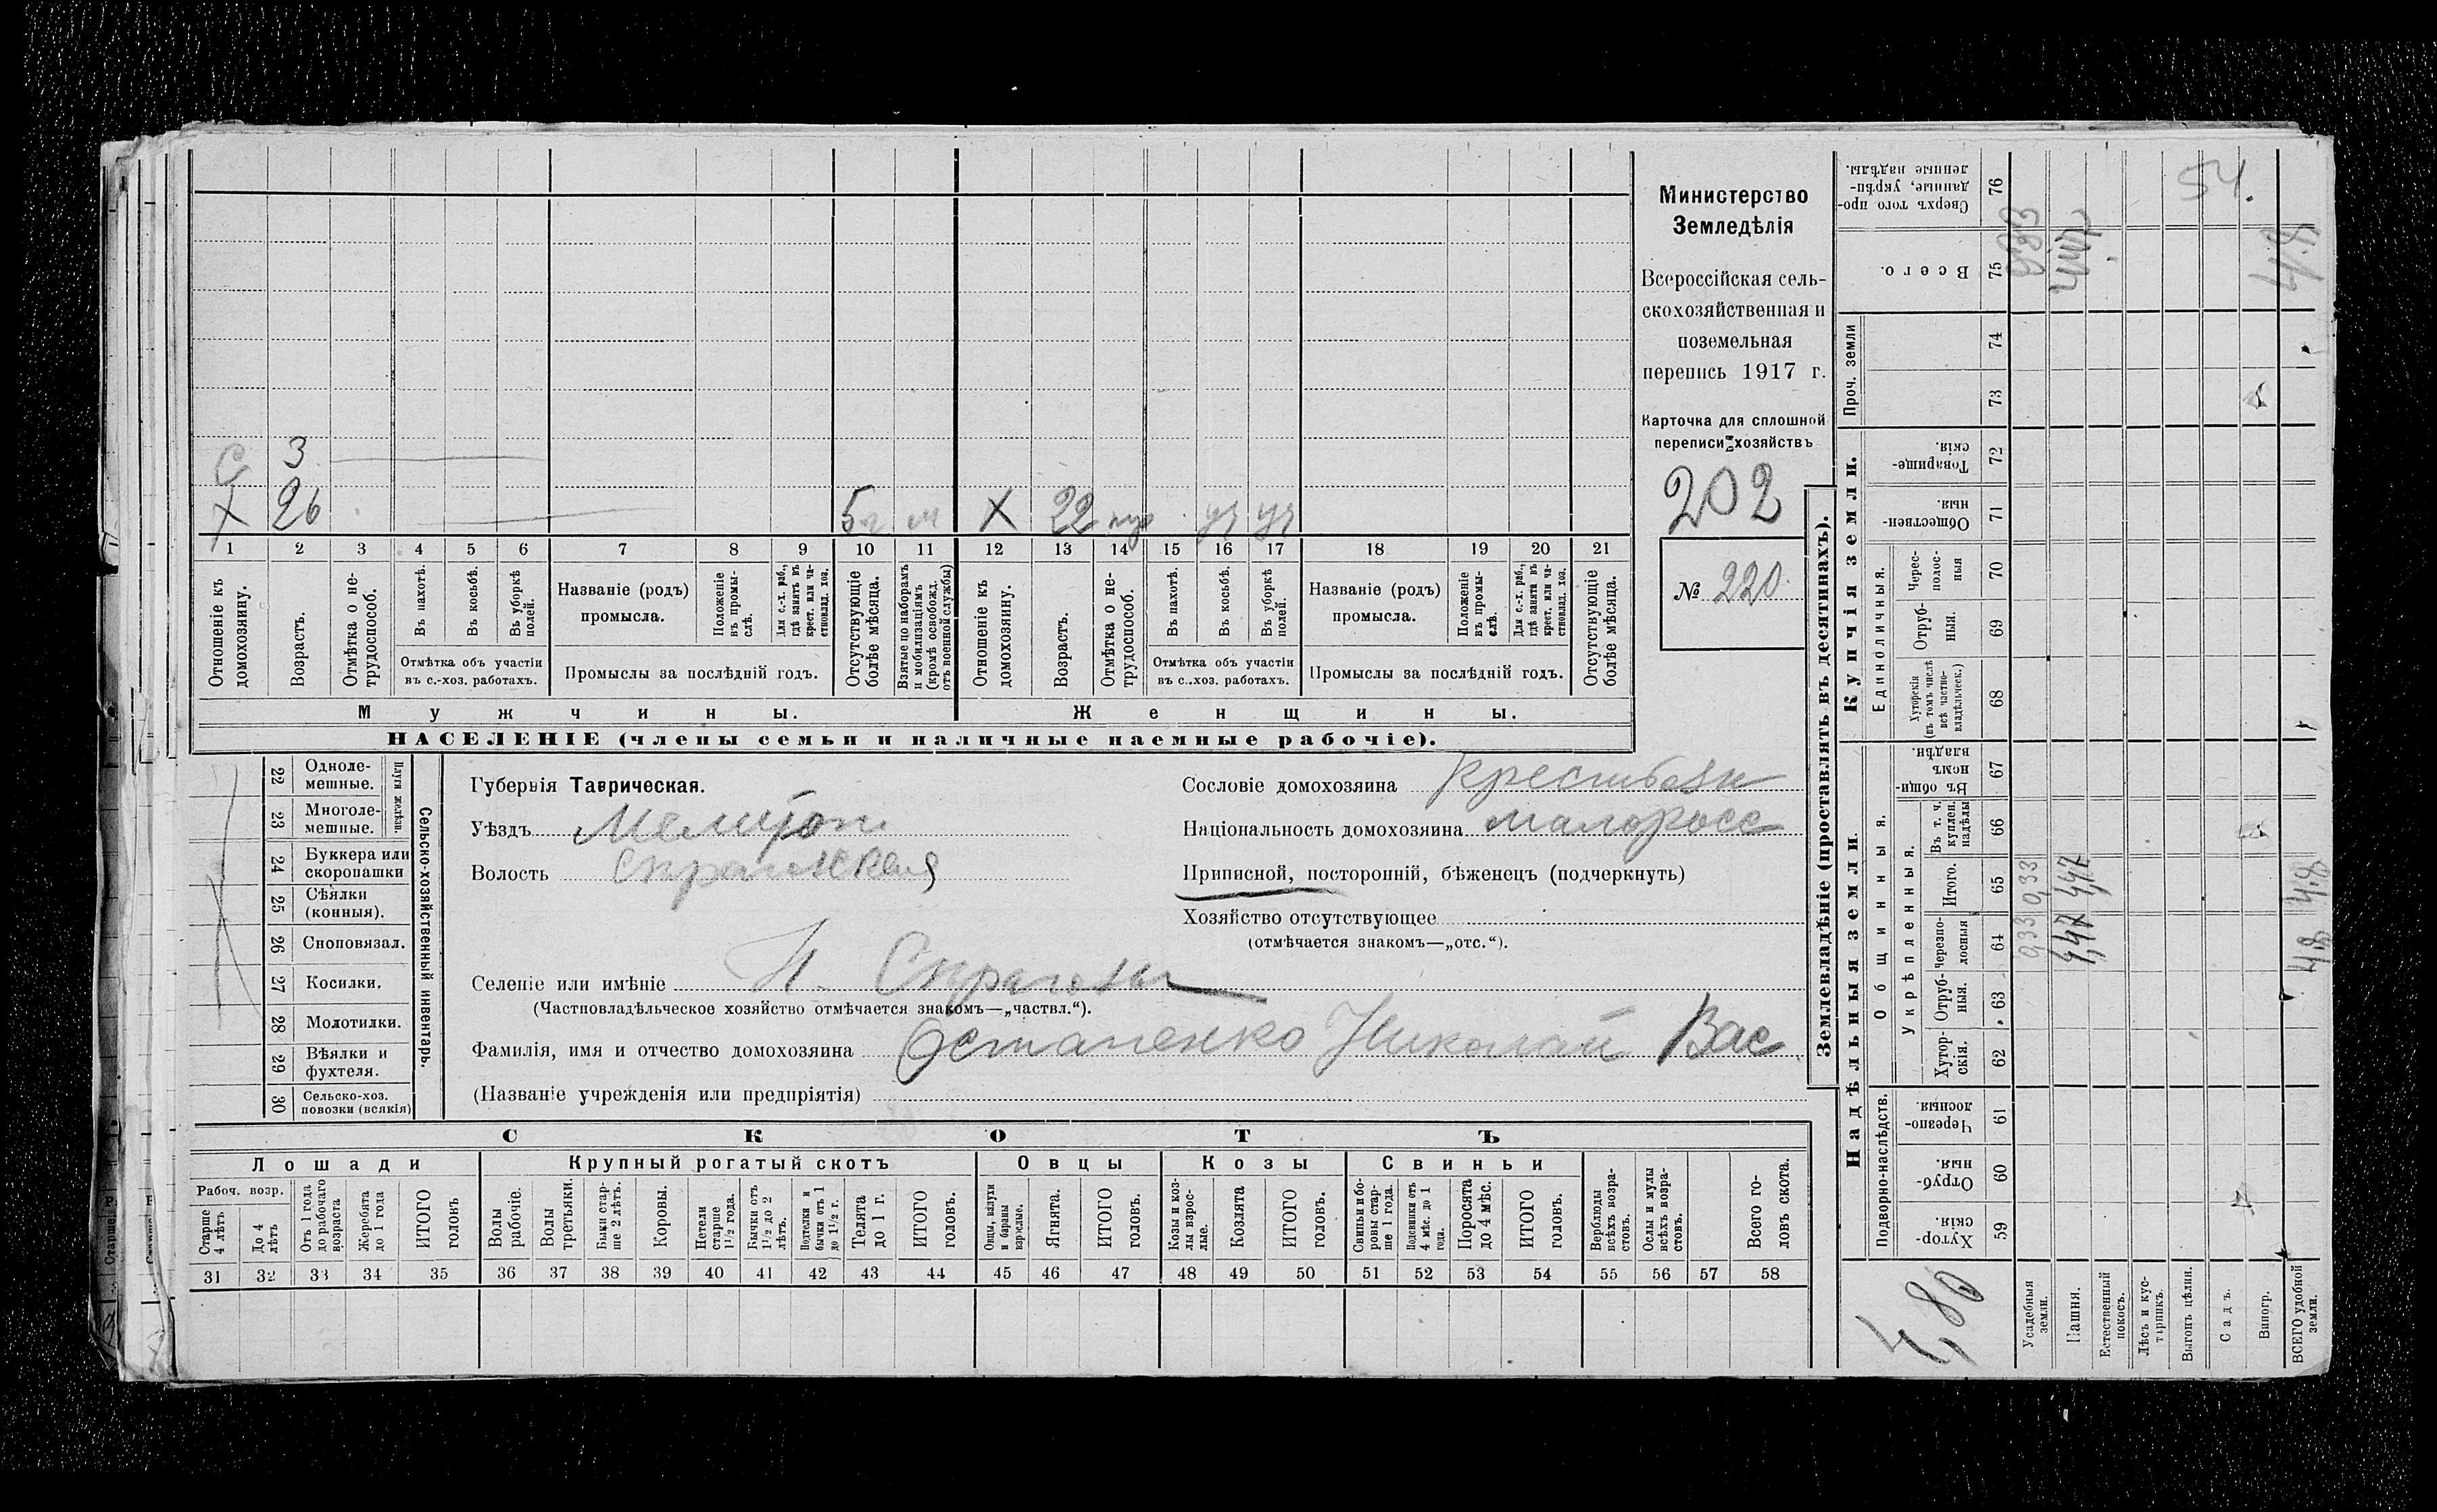 Министерство
Земледѣлія
Всероссійская сель-
скохозяйственная и
поземельная
перепись 1917 г.
Карточка для сплошной
переписи хозяйствъ
202
№ 220
С 3
Х 26 5 г м Х 22 уч уч
1 2 3 4 5 6 7 8 9 10 11 12 13 14 15 16 17 18 19 20 21
Отношеніе къ домохозяину.
Возрастъ.
Отмѣтка о не-трудоспособ.
Въ пахотѣ.
Въ косьбѣ.
Въ уборкѣ полей.
Отмѣтка объ участіи
въ с.-хоз. работахъ.
Названіе (родъ)
промысла.
Положеніе въ промы-слѣ.
Для с.-х. раб., гдѣ занятъ въ крест. или ча-стновлад. хоз.
Промыслы за послѣдній годъ.
Отсутствующіе болѣе мѣсяца.
Взятые по наборамъ и мобилизаціямъ (кромѣ освобожд. отъ военной службы)
Отношеніе къ домохозяину.
Возрастъ.
Отмѣтка о не-трудоспособ.
Въ пахотѣ.
Въ косьбѣ.
Въ уборкѣ полей.
Отмѣтка объ участіи
въ с.-хоз. работахъ.
Названіе (родъ)
промысла.
Положеніе въ промы-слѣ.
Для с.-х. раб., гдѣ заняты въ крест. или ча-стновлад. хоз.
Промыслы за послѣдній годъ.
Отсутствующіе болѣе мѣсяца.
Мужчины. Женщины.
НАСЕЛЕНІЕ (члены семьи и наличные наемные рабочіе).
22 Одноле-мешные.
23 Многоле-мешные.
Плуги желѣзн.
24 Буккера или скоропашки
25 Сѣялки (конныя).
26 Сноповязал.
27 Косилки.
28 Молотилки.
29 Вѣялки и фухтеля.
30 Сельско-хоз. повозки (всякія)
Сельско-хозяйственный инвентарь.
Губернія Таврическая.
Уѣздъ Мелитоп
Волость
Сословіе домохозяина Крестьян
Національность домохозяина малоросс
Приписной, посторонній, бѣженецъ (подчеркнуть)
Хозяйство отсутствующее
(отмѣчается знакомъ—„отс.“).
Селеніе или имѣніе
(Частновладѣльческое хозяйство отмѣчается знакомъ—„частвл.“).
Фамилія, имя и отчество домохозяина Остапенко Николай Вас
(Названіе учрежденія или предпріятія)
СКОТЪ
Лошади Крупный рогатый скотъ Овцы Козы Свиньи
Рабоч. возр.
Старше 4 лѣтъ
До 4 лѣтъ
Отъ 1 года до рабочаго возраста
Жеребята до 1 года
ИТОГО головъ
Волы рабочіе.
Волы третьяки.
Быки стар-ше 2 лѣтъ.
Коровы.
Нетели старше 1½ года.
Бычки отъ 1½ до 2 лѣтъ.
Подтелки и бычки отъ 1 до 1½ г.
Телята до 1 г.
ИТОГО головъ.
Овцы, валухи и бараны взрослые.
Ягнята.
ИТОГО головъ.
Козы и коз-лы взрос-лые.
Козлята
ИТОГО головъ.
Свиньи и бо-ровы стар-ше 1 года.
Подсвинки отъ 4 мѣс. до 1 года.
Поросята до 4 мѣс.
ИТОГО головъ.
Верблюды всѣхъ возра-стовъ.
Ослы и мулы всѣхъ возра-стовъ.
Всего го-ловъ скота.
31 32 33 34 35 36 37 38 39 40 41 42 43 44 45 46 47 48 49 50 51 52 53 54 55 56 57 58
Землевладѣніе (проставлять въ десятинахъ).
Надѣльныя земли. Купчія земли. Проч. земли
Подворно-наслѣдств.
Общинныя.
Укрѣпленныя.
Единоличныя.
59 Хутор-скія.
60 Отруб-ныя.
61 Черезпо-лосныя.
62 Хутор-скія.
63 Отруб-ныя.
64 Черезпо-лосныя
65 Итого.
66 Въ т. ч. куплен. надѣлы
67 Въ общи-номъ владѣн.
68 Хуторскія (въ томъ числѣ всѣ частно-владѣльческ.)
69 Отруб-ныя.
70 Черес-полос-ныя
71 Обществен-ныя.
72 Товарище-скія.
73
74
75 Всего.
76 Сверхъ того про-данные, укрѣп-ленные надѣлы.
Усадебныя земли. 0,33 0,33
Пашня. 4,47 4,47
Естественный покосъ.
Лѣсъ и кус-тарникъ.
Выгонъ цѣлин.
Садъ.
Виногр.
ВСЕГО удобной земли. 4.8 4.8 4.8
4,80
54.